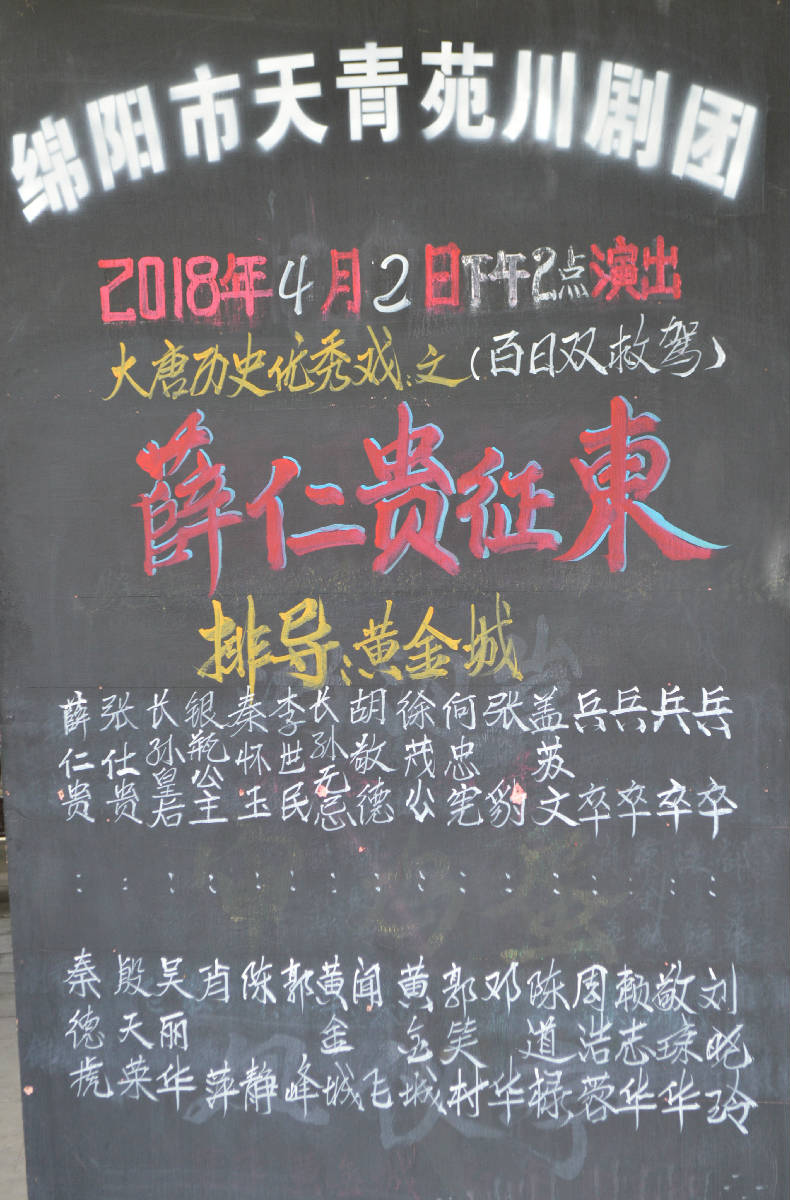 绵阳市天青苑川剧团
2018年4月2日下午2点演出
大唐历史优秀戏:之(百日双救驾)
薛仁贵征東
排导:黄金城
薛仁贵:秦德虎
张仕贵:殷天荣
长孙皇后:吴丽华
银瓶公主:肖萍
秦怀玉:陈静
李世民:郭峰
长孙无忌:黄金城
胡敬德:闻飞
徐茂公:黄金城
何忠宪:郭笑村
张豹:邓华
盖苏文:陈道禄
兵卒:周浩蓉
兵卒:赖志华
兵卒:敬琼华
兵卒:刘晓玲